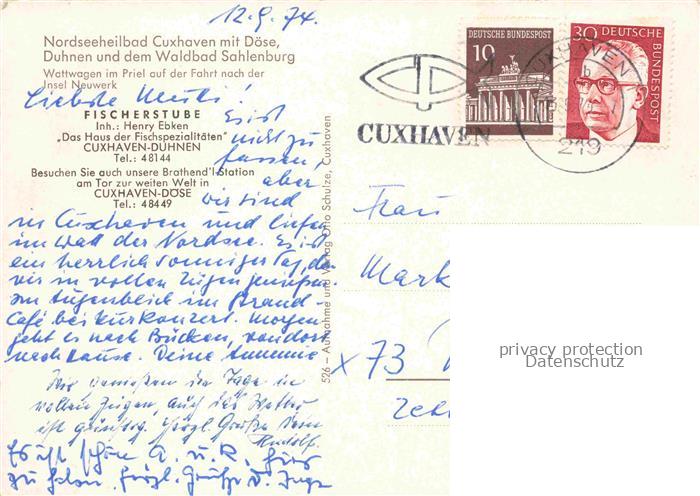 12.9.74.
Nordseeheilbad Cuxhaven mit Döse,
Duhnen und dem Waldbad Sahlenburg
Wattwagen im Priel auf der Fahrt nach der
Insel Neuwerk
Liebste Musci!
FISCHERSTUBE
Inh.: Henry Ebken
„Das Haus der Fischspezialitäten"
CUXHAVEN-DUHNEN
Tel.: 48144
Besuchen Sie auch unsere Brathend'l-Station
am Tor zur weiten Welt in
CUXHAVEN-DÖSE
Tel.: 48449
Es ist
nicht zu
fassen,
aber
wir sind
in Cuxhaven und liefen
im Watt der Nordsee. Es ist
ein herrlich sonniger Tag, den
wir in vollen Zügen geniessen
im Augenblick im Strand-
Café bei Kurkonzert. Morgen
geht es nach Bücken, von dort
nach Hause. Deine
Wir genießen die Tage in
vollen Zügen, auch das Wetter
ist günstig. Herzl. Grüße Dein
Rudolf.
Es ist schön A. u. R. hier
zu haben. Herzl. Grüße v. Inge
526 – Aufnahme und Verlag Otto Schulze, Cuxhaven
DEUTSCHE BUNDESPOST
10
30 DEUTSCHE
BUNDESPOST
CUXHAVEN
CUXHAVEN
b
219
Frau
Mark
x 73
privacy protection
Datenschutz